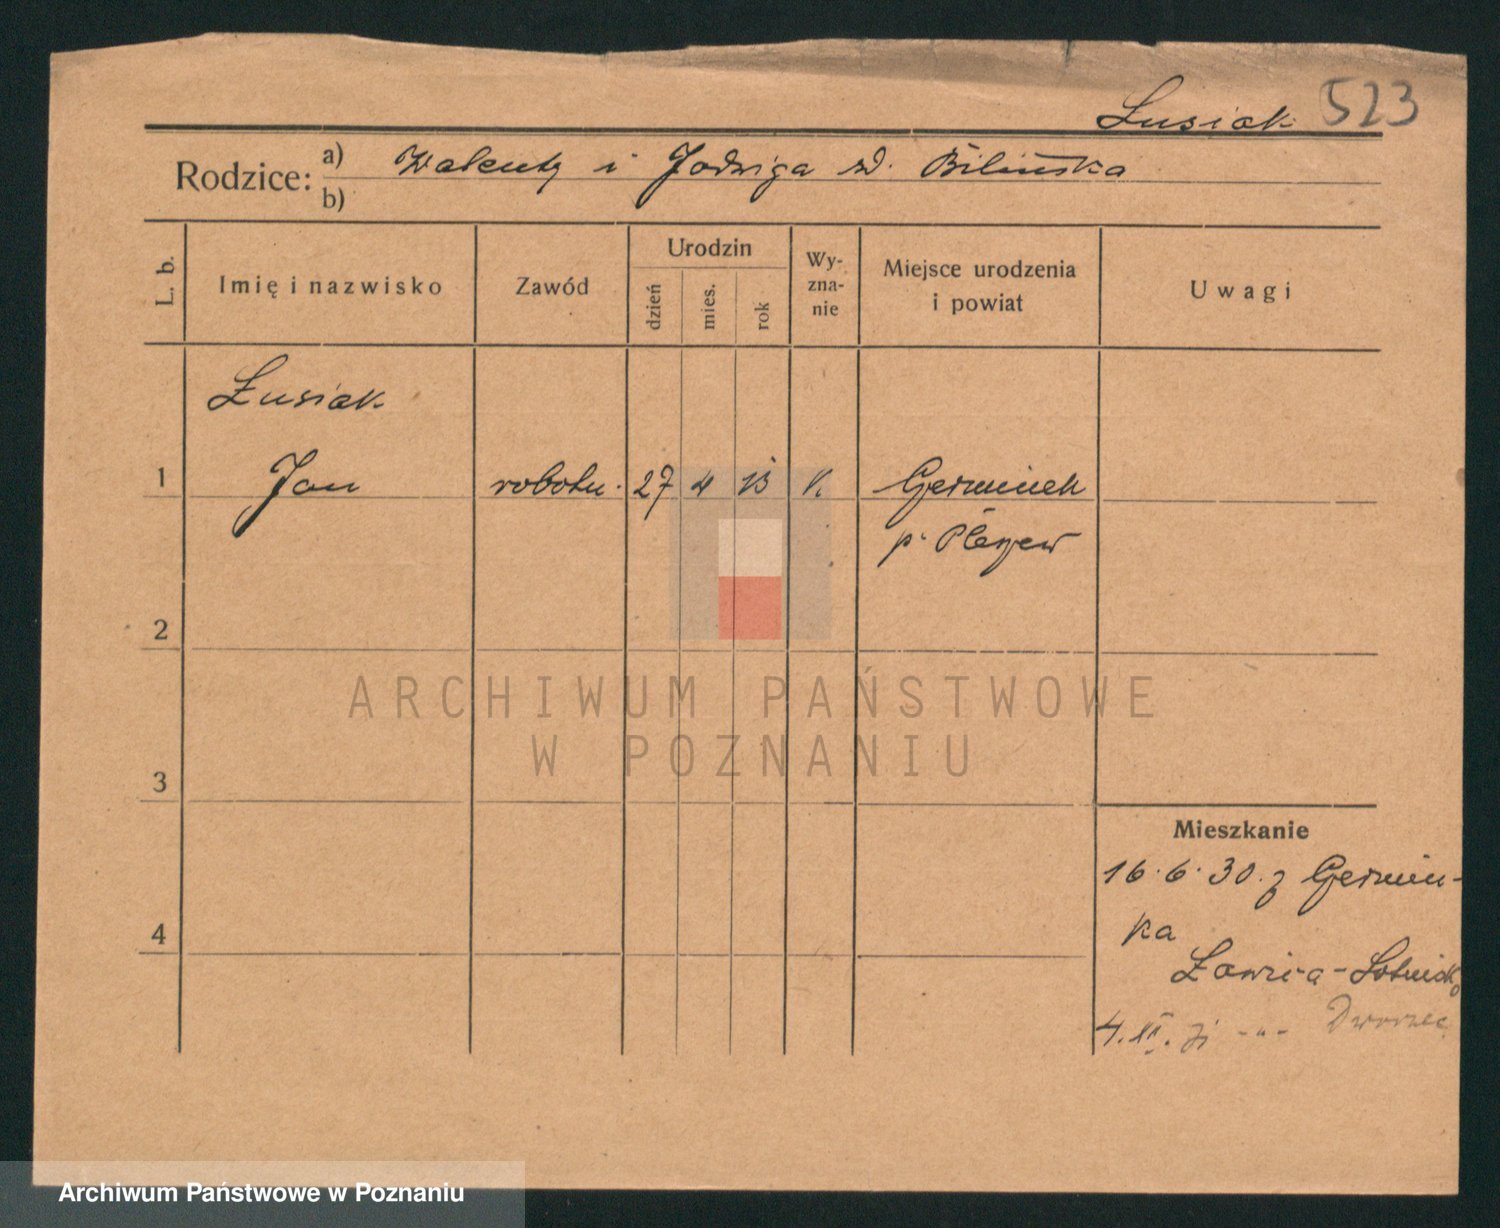 Łusiak 523
Rodzice:
a) Walenty i Jadwiga zd. Bilińska
b)
L. b.
Imię i nazwisko
Zawód
Urodzin
dzień
mies.
rok
Wy-
zna-
nie
Miejsce urodzenia
i powiat
Uwagi
Łusiak
1 Jan robotn. 27 4 13 K. Germinek
p. Pleszew
2
3
4
Mieszkanie
16.6.30. z Germin-
ka
Ławica-Lotnisko
4.XII. " Dworzec
ARCHIWUM PAŃSTWOWE
W POZNANIU
Archiwum Państwowe w Poznaniu